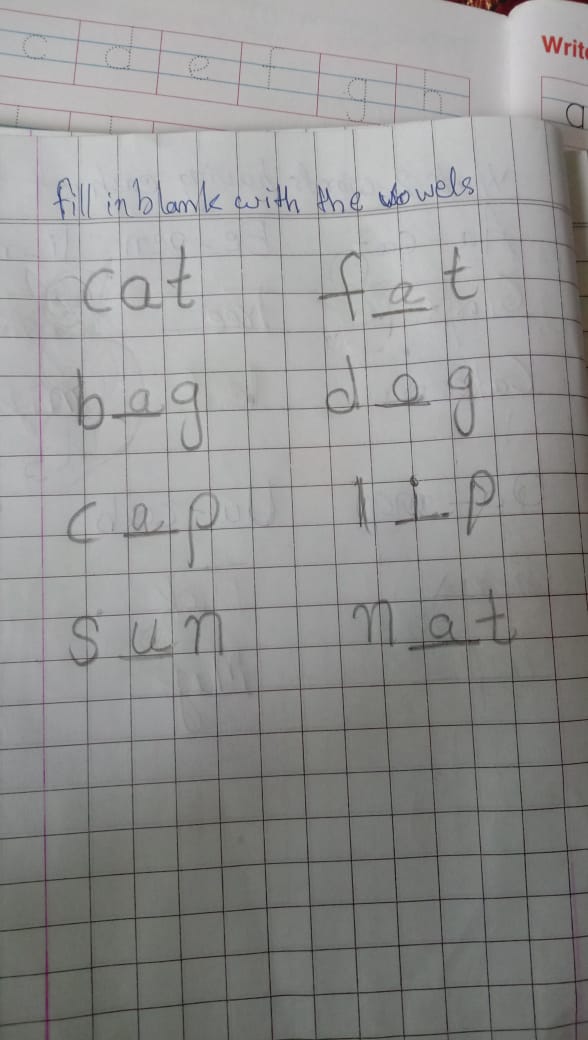 c d e f g h
Write
a
fill in blank with the vowels
cat fat
bag dog
cap lip
sun nat